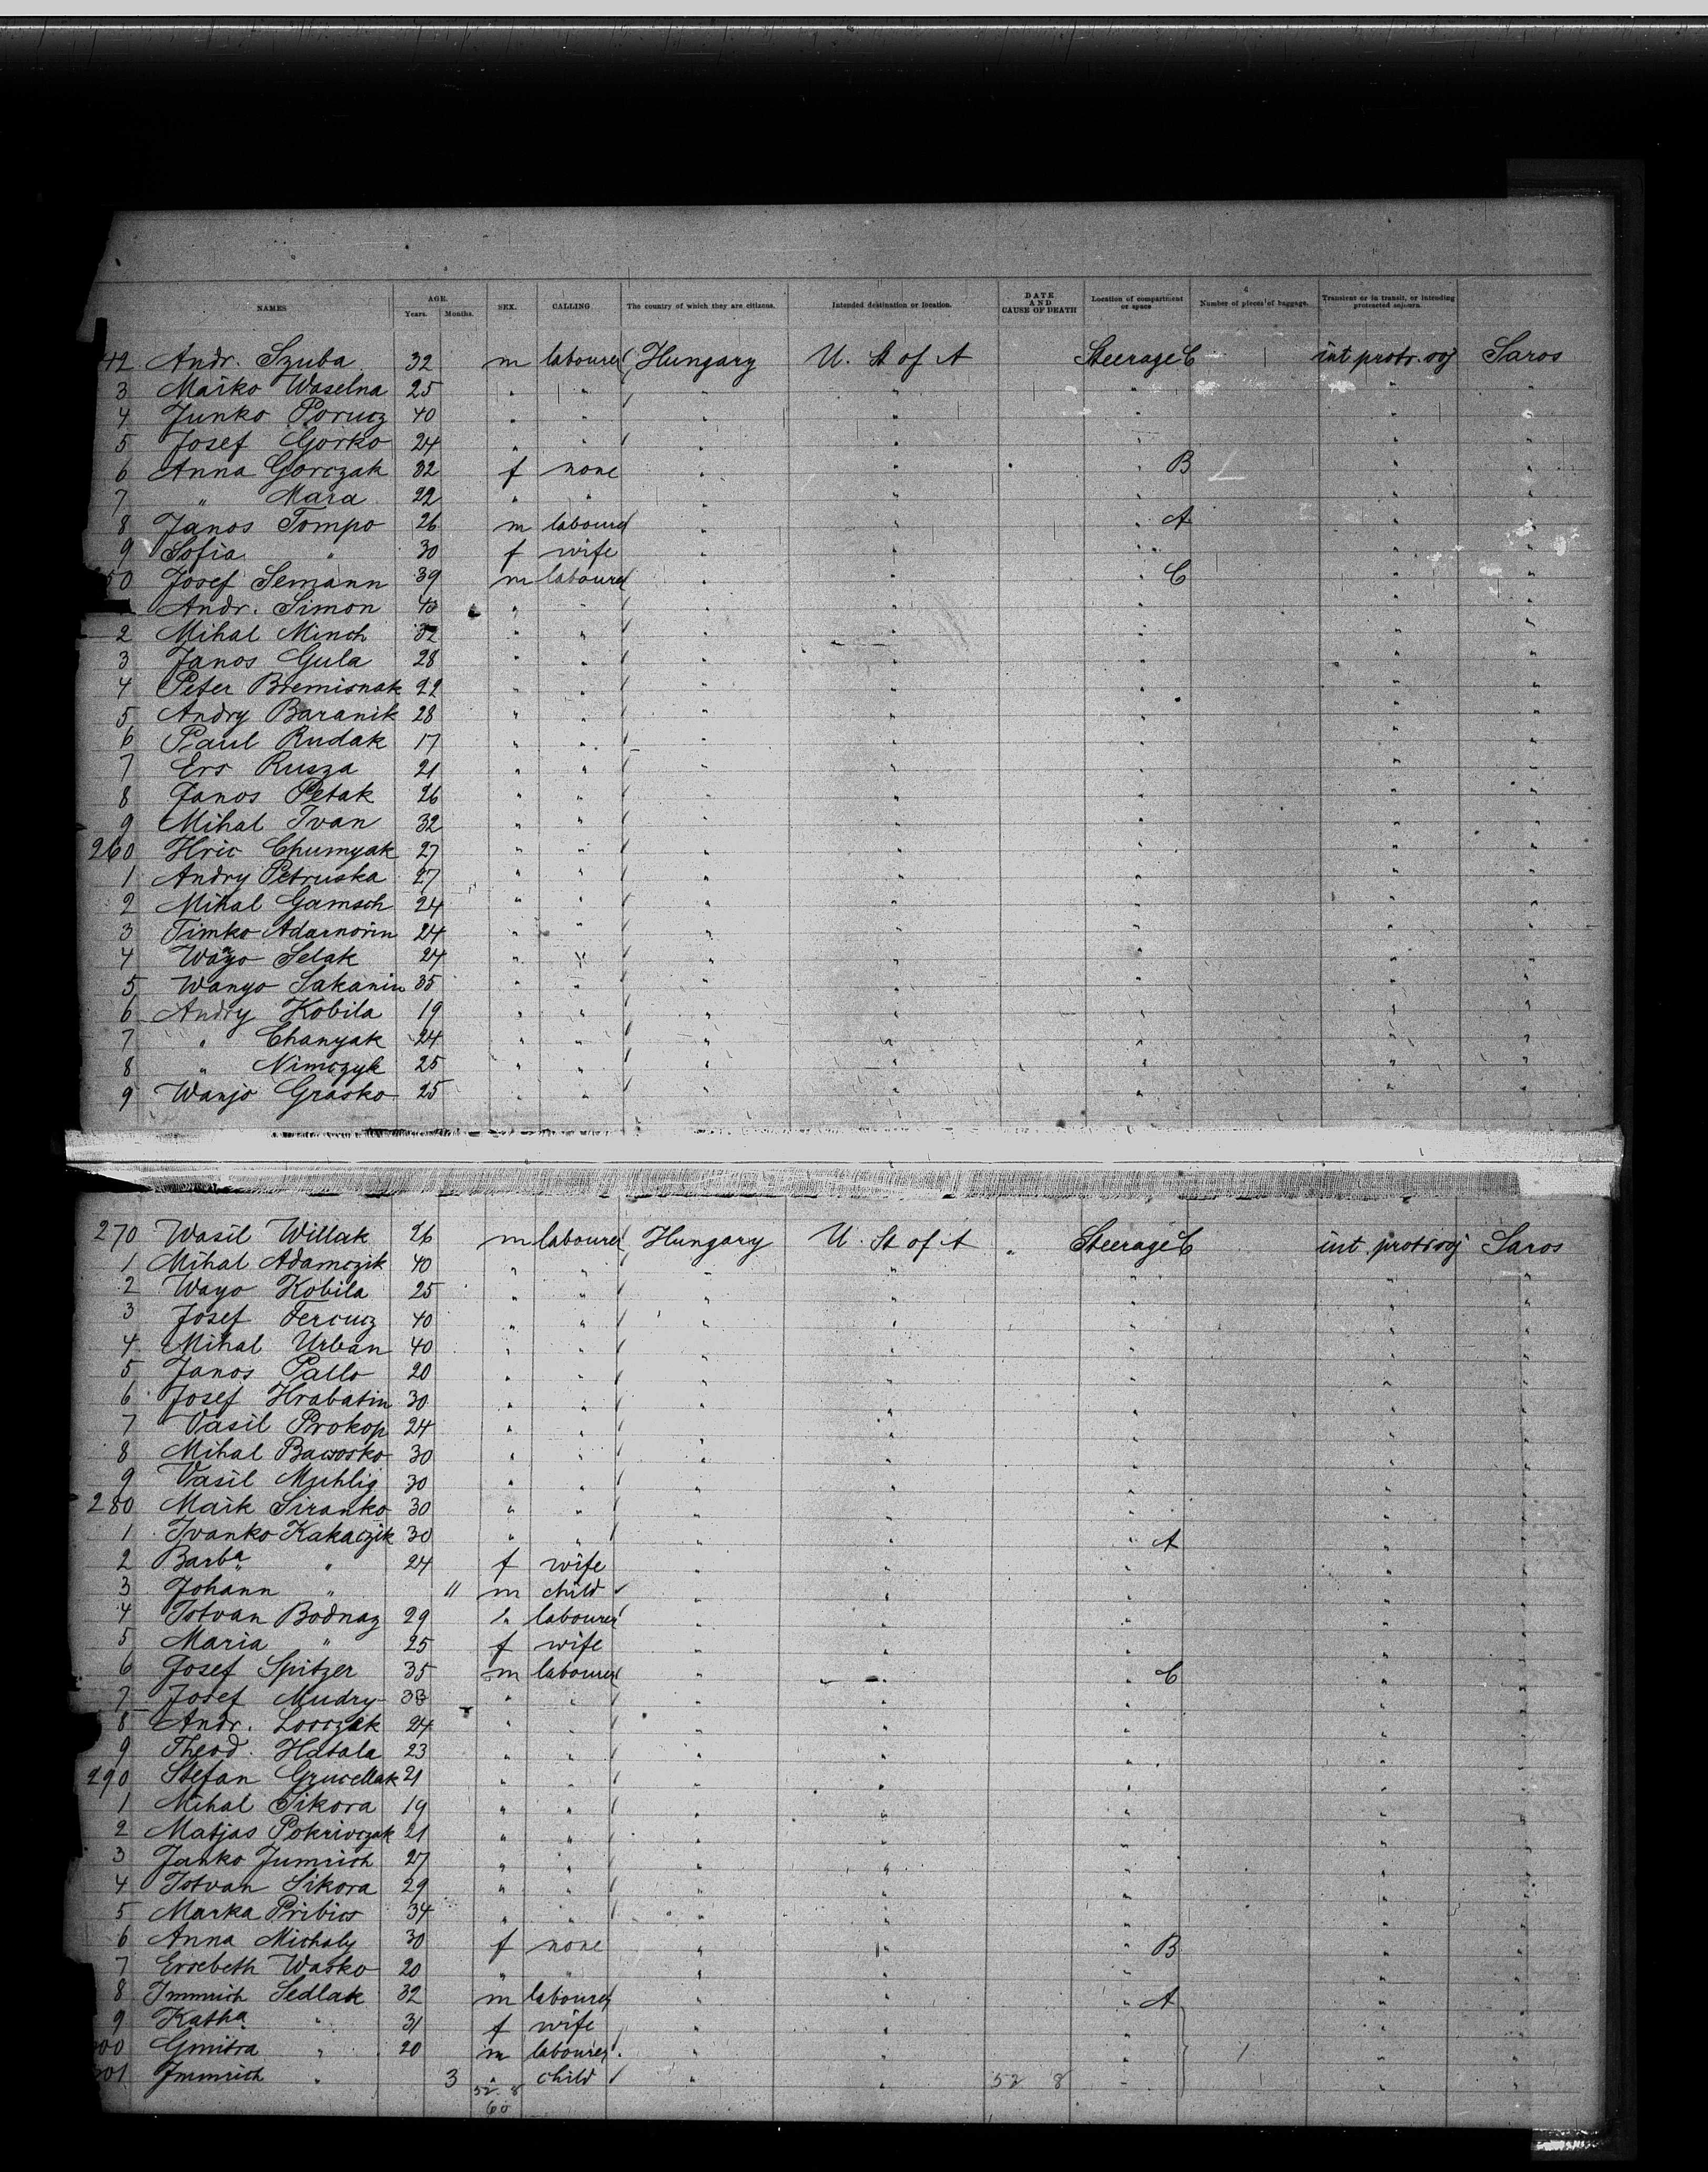 NAMES AGE. Years. Months. SEX. CALLING The country of which they are citizens. Intended destination or location. DATE AND CAUSE OF DEATH Location of compartment or space Number of pieces of baggage. Transient or in transit, or intending protracted sojourn.
42 Andr. Szuba 32 m labourer Hungary U. St of A Steerage C int protr. soj Saros
3 Maiko Waselna 25 " " " " " " "
4 Junko Porucz 40 " " " " " " "
5 Josef Gorko 24 " " " " " " "
6 Anna Gorczak 32 f none " " " B " "
7 " Mara 22 " " " " " " "
8 Janos Tompo 26 m labourer " " " A " "
9 Sofia " 30 f wife " " " " "
50 Josef Semann 39 m labourer " " " C " "
Andr. Simon " " " " " " "
2 Mihal Minch 32 " " " " " " "
3 Janos Gula 28 " " " " " " "
4 Peter Bremisnak 22 " " " " " " "
5 Andry Baranik 28 " " " " " " "
6 Paul Rudak 17 " " " " " " "
7 Ers Rusza 21 " " " " " " "
8 Janos Petak 26 " " " " " " "
9 Mihal Ivan 32 " " " " " " "
260 Hric Chumyak 27 " " " " " " "
1 Andry Petruska 27 " " " " " " "
2 Mihal Gamsch 24 " " " " " " "
3 Timko 24 " " " " " " "
4 Selak 24 " " " " " " "
5 Wanyo Sakanin 35 " " " " " " "
6 Andry Kobila 19 " " " " " " "
7 " Chanyak 24 " " " " " " "
8 " Nimczyk 25 " " " " " " "
9 Wanjo Grasko 25 " " " " " " "
270 Wasil Willak 26 m labourer Hungary U. St of A " Steerage C int protr soj Saros
1 Mihal Adamczik 40 " " " " " " "
2 Wayo Kobila 25 " " " " " " "
3 Josef Fercucz 40 " " " " " " "
4 Mihal Urban 40 " " " " " " "
5 Janos Pallo 20 " " " " " " "
6 Josef Hrabatin 30 " " " " " " "
7 Vasil Prokop 24 " " " " " " "
8 Mihal Bawosko 30 " " " " " " "
9 Vasil Muhlig 30 " " " " " " "
280 Maik Siranko 30 " " " " " " "
1 Ivanko Kakaczik 30 " " " " " A " "
2 Barba " 24 f wife " " " " "
3 Johann " 11 m child " " " " "
4 Istvan Bodnaz 29 " labourer " " " " "
5 Maria " 25 f wife " " " " "
6 Josef Spitzer 35 m labourer " " " C " "
7 Josef Mudry 33 " " " " " " "
8 Andr. Lorczak 24 " " " " " " "
9 Theod. Hatala 23 " " " " " " "
290 Stefan Grucellak 21 " " " " " " "
1 Mihal Sikora 19 " " " " " " "
2 Matjas Pokrivczak 21 " " " " " " "
3 Janko Jumrich 27 " " " " " " "
4 Istvan Sikora 29 " " " " " " "
5 Marka Pribics 34 " " " " " " "
6 Anna Michaly 30 f none " " " B " "
7 Ersebeth Wasko 20 " " " " " " "
8 Immrich Sedlak 32 m labourer " " " A " "
9 Katha " 31 f wife " " " " "
300 Gmitra " 20 m labourer " " " 1 " "
301 Immrich " 3 " child " " 52 8 " " "
52 8
60